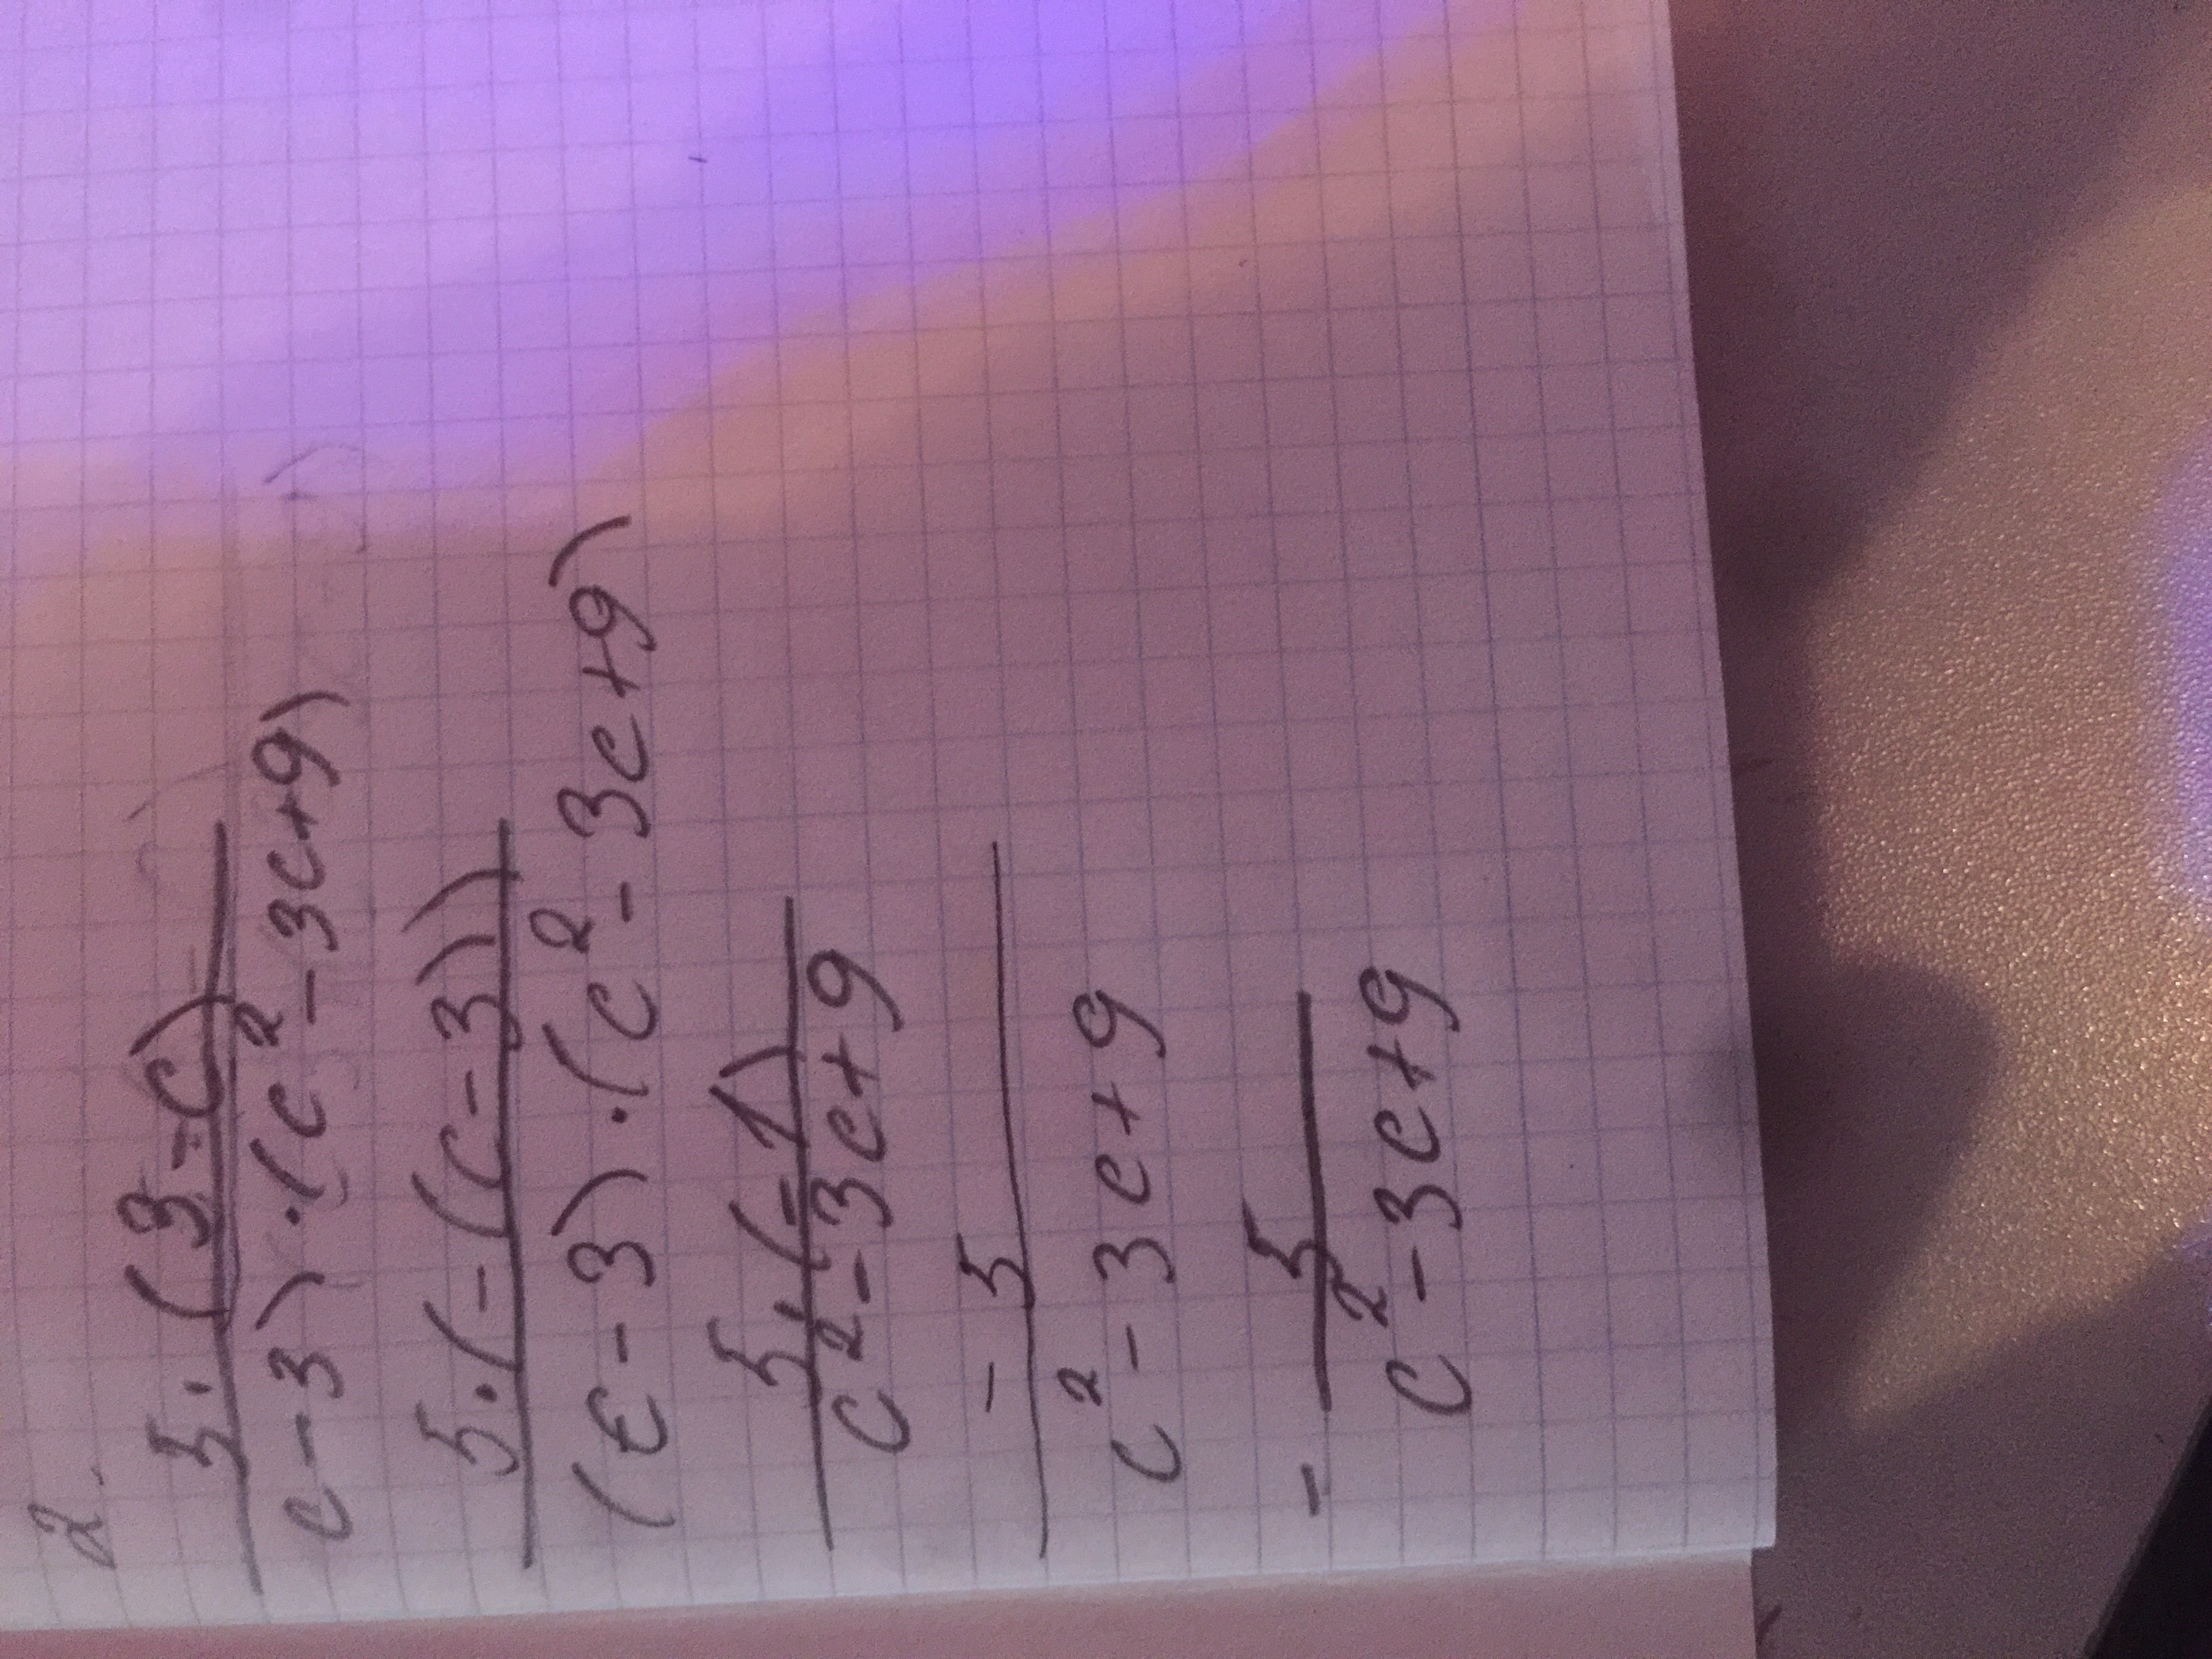 2.
5·(3-c)
c-3)·(c²-3c+9)
5·(-(c-3))
(c-3)·(c²-3c+9)
5·(-1)
c²-3c+9
-5
c²-3c+9
- 5
c²-3c+9